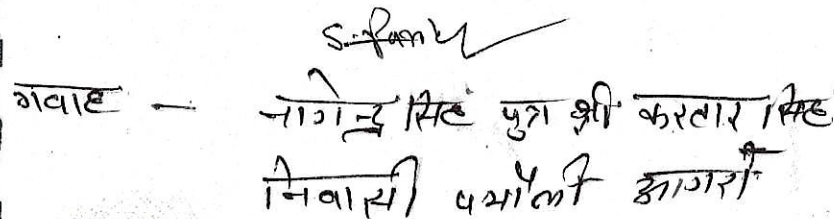 गवाह — नागेन्द्र सिंह पुत्र श्री करतार सिंह
निवासी पथौली आगरा